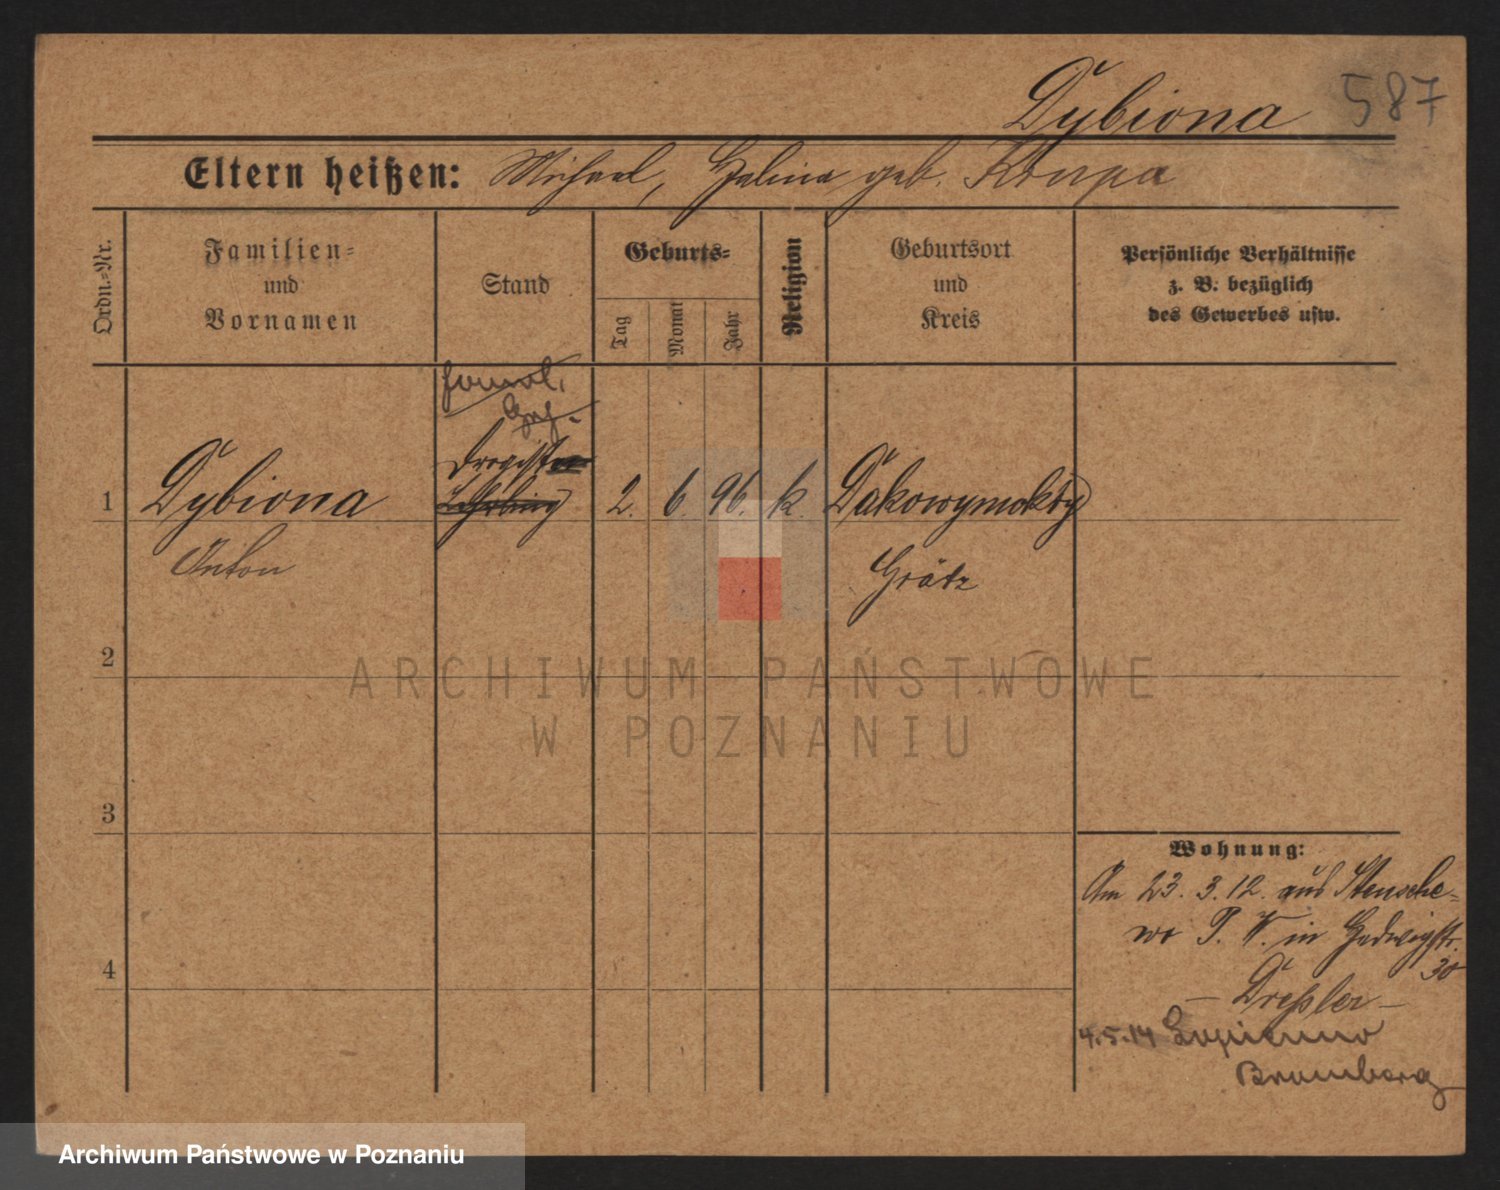 Dybiona 587
Eltern heißen: Michael, Halina geb. Krupa
Ordn.=Nr.
Familien=
und
Vornamen
Stand
Geburts=
Tag
Monat
Jahr
Religion
Geburtsort
und
Kreis
Persönliche Verhältnisse
z. B. bezüglich
des Gewerbes usw.
Drogisten
Lehrling
1 Dybiona 2. 6. 96. k. Dakowymokry
Anton
Grätz
2
ARCHIWUM PAŃSTWOWE
W POZNANIU
3
Wohnung:
Am 23. 3. 12. aus Stensche=
wo P. W. in Hedwigstr.
30
4
– Dreßler –
4.5.14
Bromberg
Archiwum Państwowe w Poznaniu